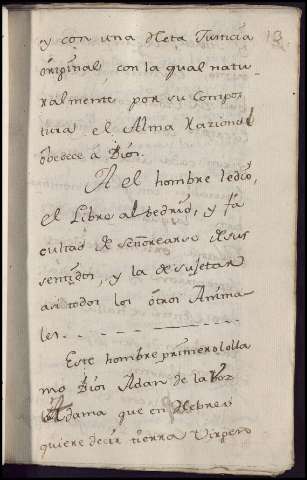 13
y con una Neta Justicia
original con la qual natu-
ralmente por su Compos-
tura el Alma Razional
obedece a Dios.
A el hombre le dio,
el Libre albedrio, y fa
cultad de señorearse de sus
sentidos, y la de sujetar
asi todos los otros Anima-
les.
Este hombre primero lolla
mo Dios Adan de la voz
Adama que en Hebreo
quiere decir tierra Virgen